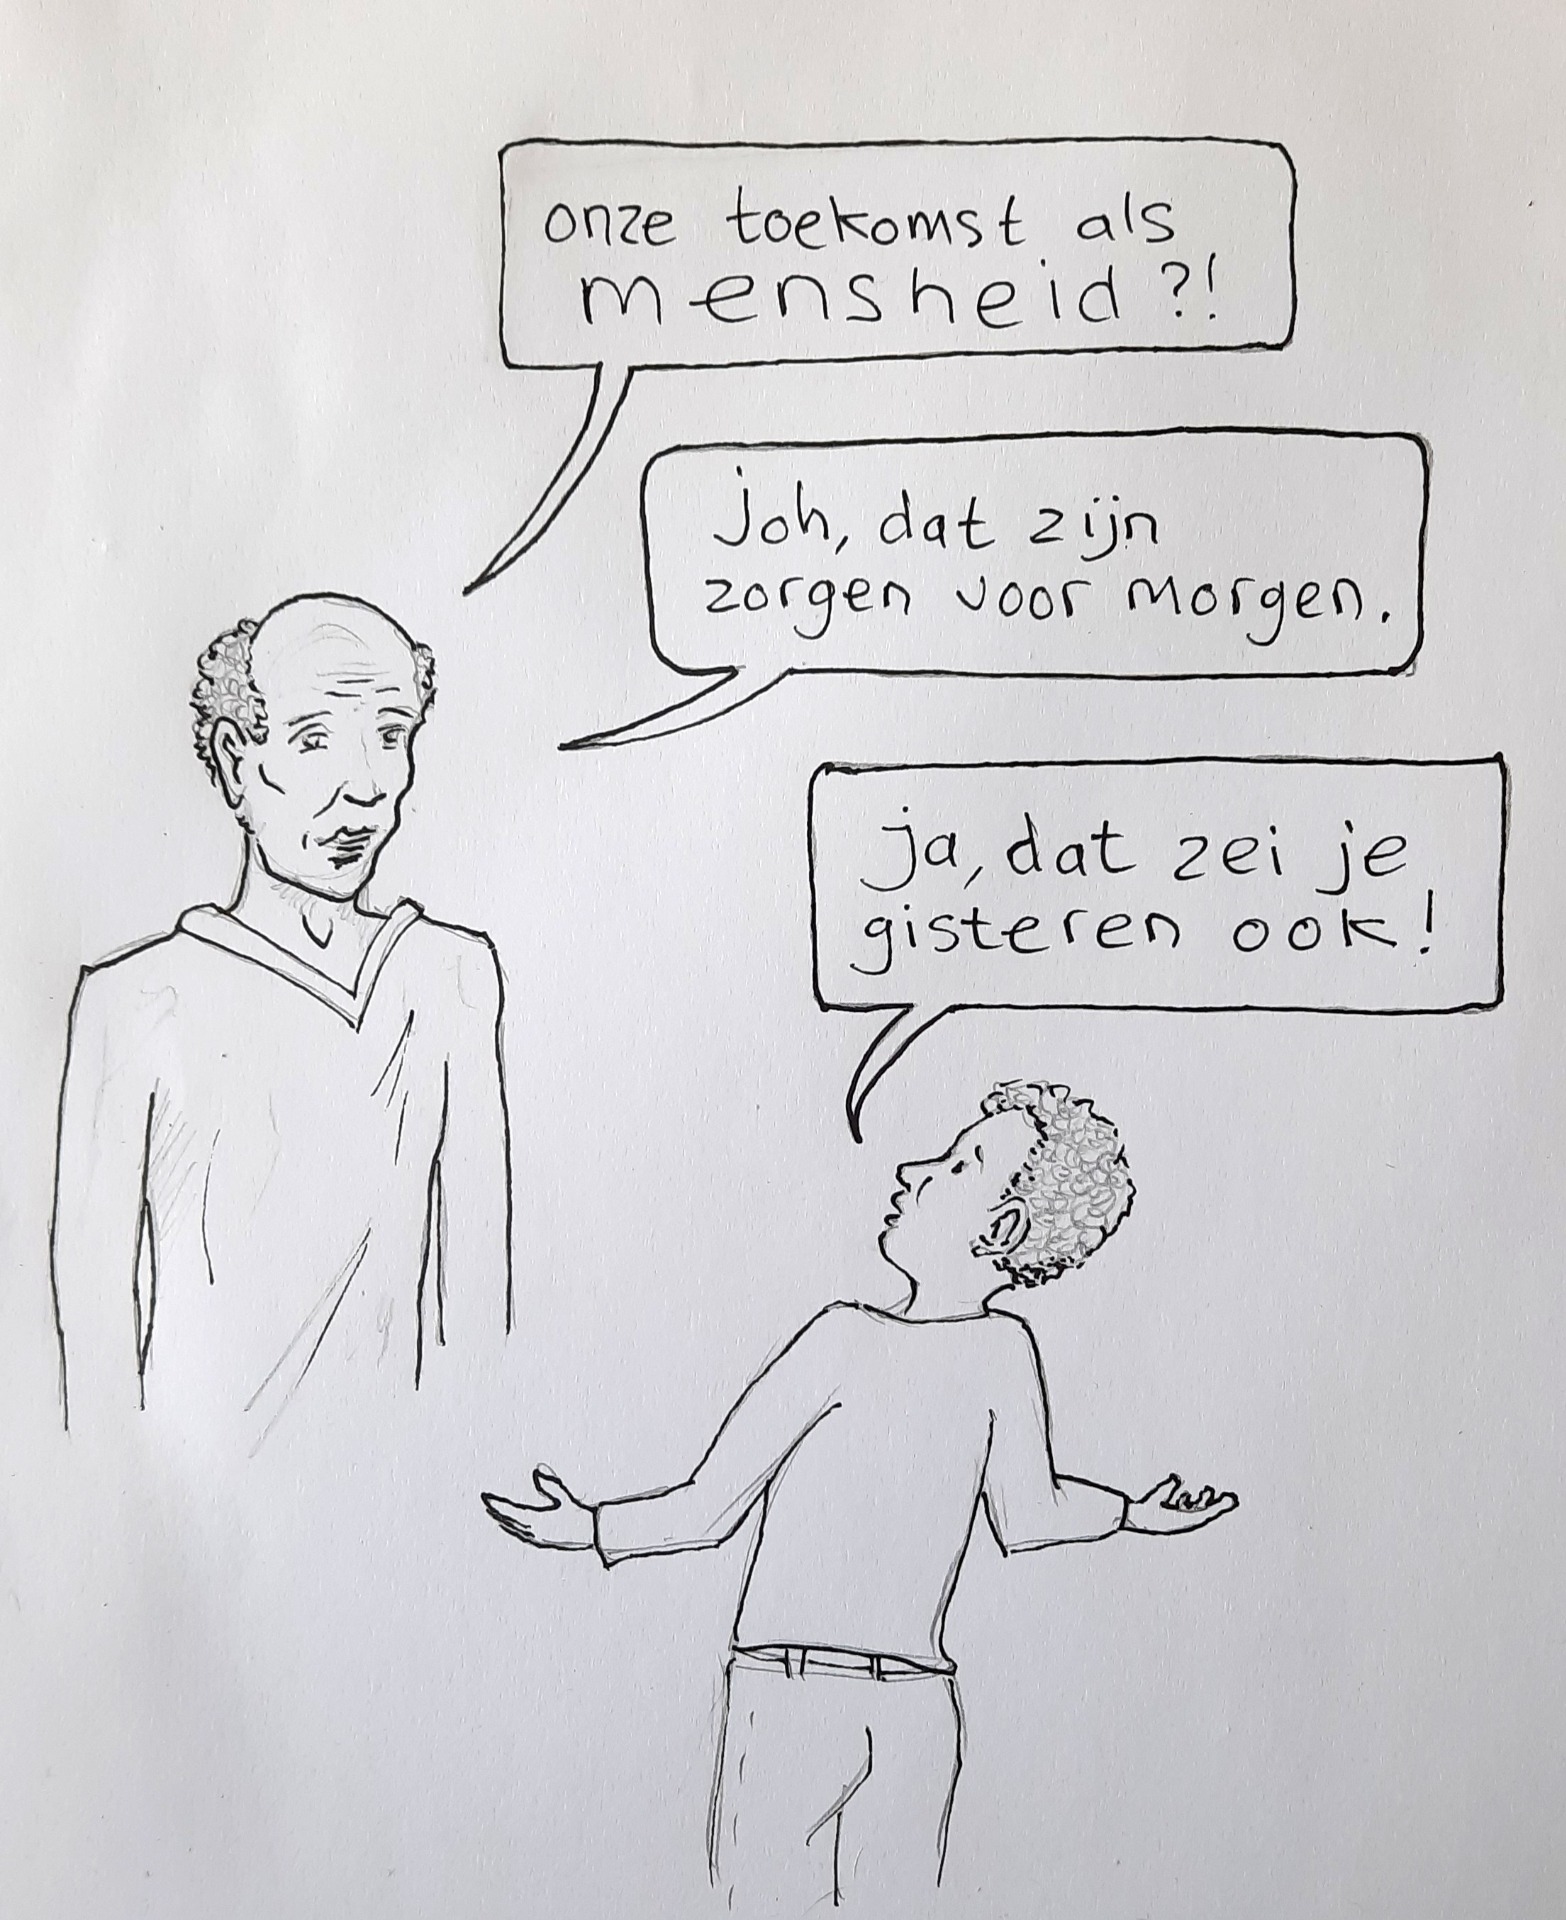 onze toekomst als
mensheid?!
joh, dat zijn
zorgen voor morgen.
ja, dat zei je
gisteren ook!